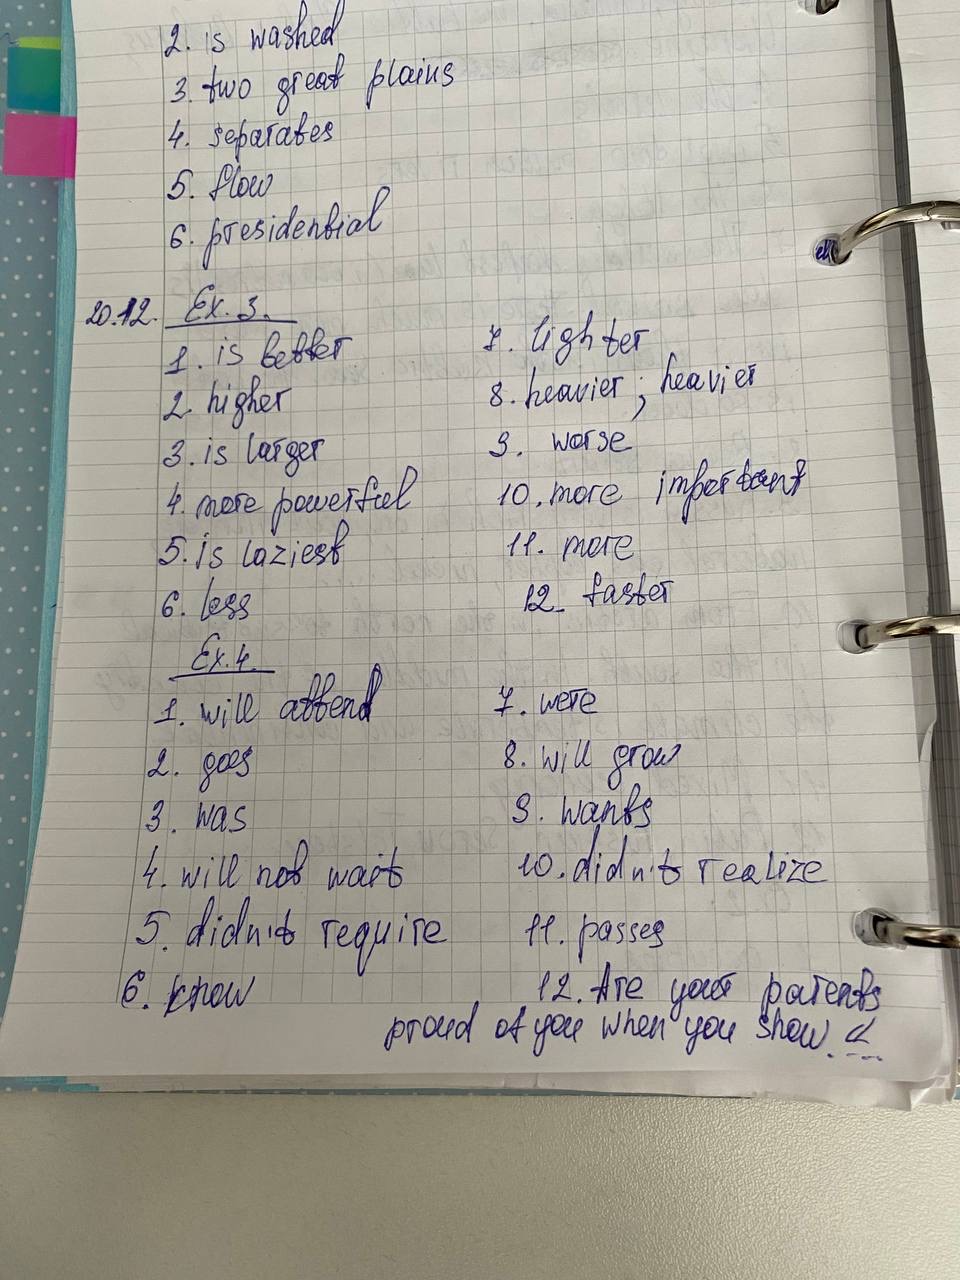 2. is washed
3. two great plains
4. separates
5. flow
6. presidential
20.12. Ex. 3.
1. is better
2. higher
3. is larger
4. more powerful
5. is laziest
6. less
7. lighter
8. heavier ; heavier
9. worse
10. more important
11. more
12. faster
Ex. 4.
1. will attend
2. goes
3. was
4. will not wait
5. didn't require
6. know
7. were
8. will grow
9. wants
10. didn't realize
11. passes
12. Are your parents
proud of you when you show